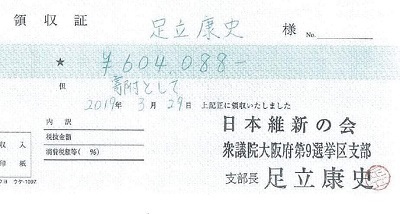 領収証 足立康史 様 No.
★ ¥604,088-
但 寄附として
2019年 3月 29日 上記正に領収いたしました
内訳
税抜金額
消費税額等(%)
収入
印紙
日本維新の会
衆議院大阪府第9選挙区支部
支部長 足立康史